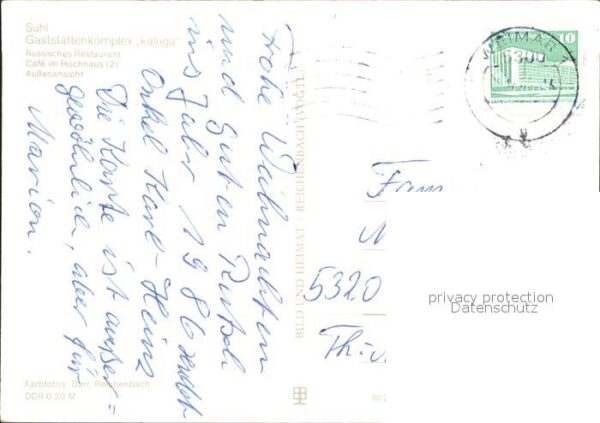 Suhl
Gaststättenkomplex „kaluga"
Russisches Restaurant
Café im Hochhaus (2)
Außenansicht
Frohe Weihnachten
und Guten Rutsch
ins Jahr 1986 sendet
Onkel Karl-Heinz
Die Karte ist außer=
gewöhnlich, aber für
Marion.
Farbfotos: Darr, Reichenbach
DDR 0,20 M
BILD UND HEIMAT · REICHENBACH (VOGTL)
WEIMAR 1
5300
10
Fam
5320
Thü
privacy protection
Datenschutz